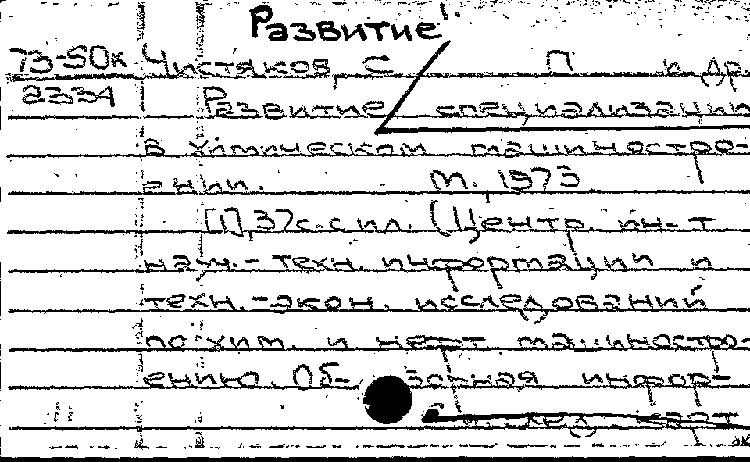 Развитие
73-50к Чистяков, С П и др.
2334 Развитие специализации
в химическом машиностро-
ении. М., 1973
[1], 37 с. с ил. (Центр. ин-т
науч.-техн. информации и
техн.-экон. исследований
по хим. и нефт машиностро-
ению. Об- зорная инфор-
след карт